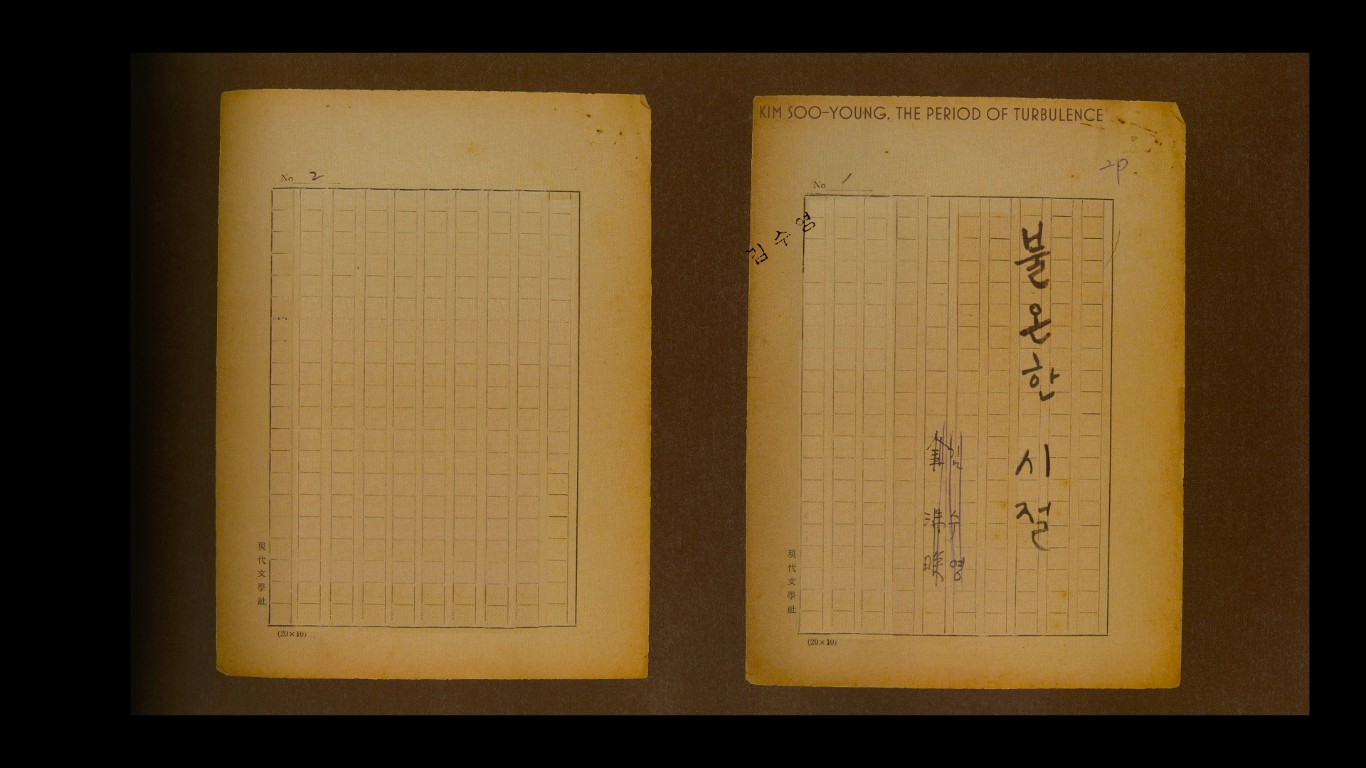 KIM SOO-YOUNG, THE PERIOD OF TURBULENCE
2P
No 1
김수영
불온한 시절
김수영
金洙暎
現代文學社
(20×10)
No 2
現代文學社
(20×10)